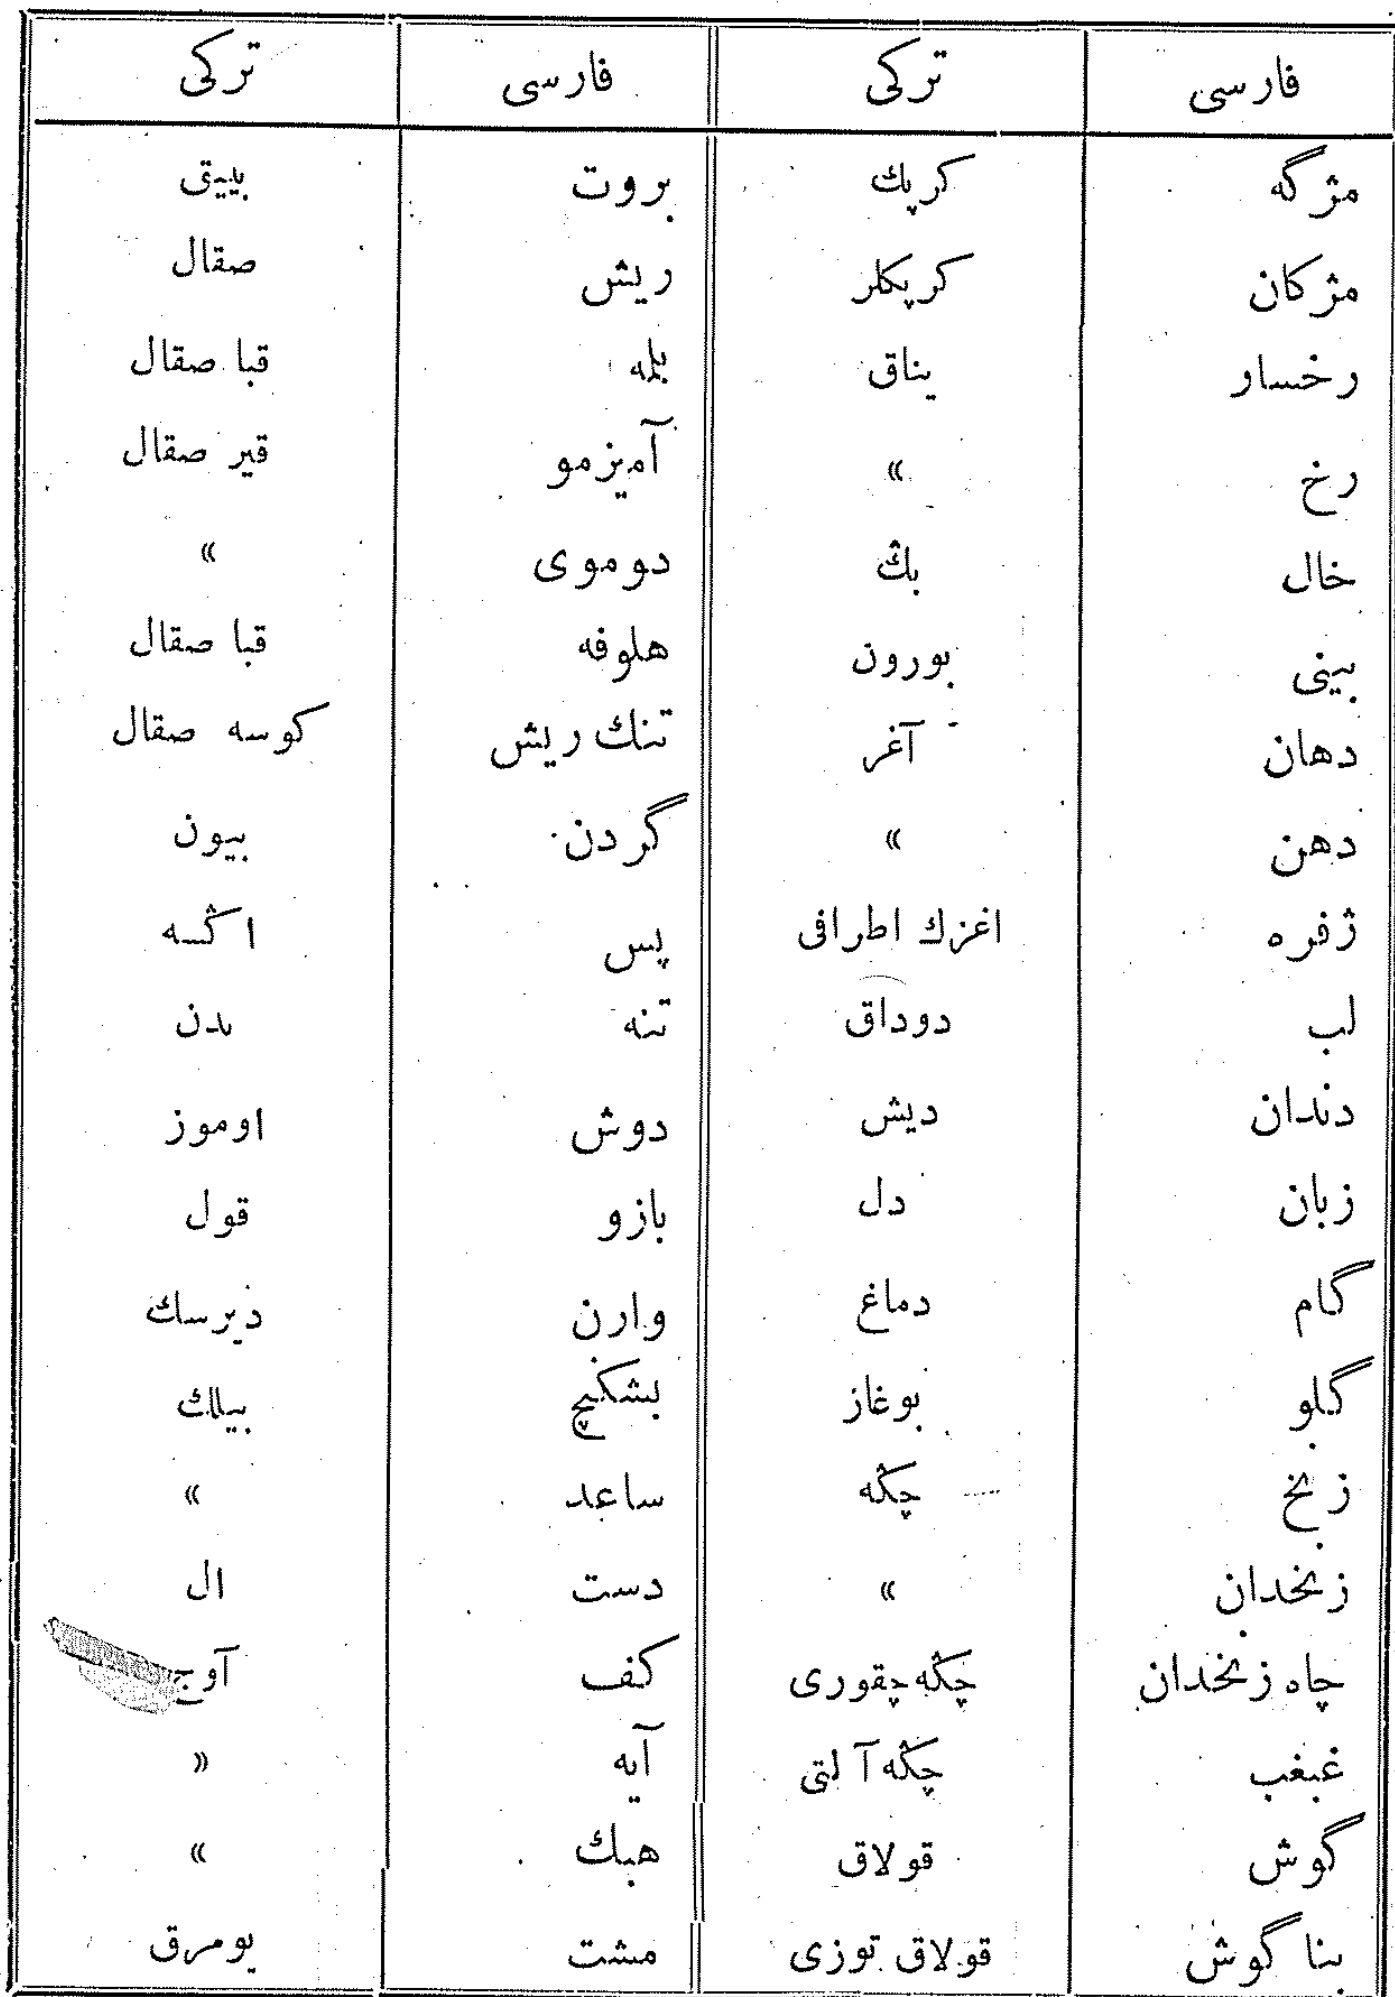 فارسی ترکی فارسی ترکی
مژگه کرپك بروت بییق
مژکان کرپکلر ریش صقال
رخسار یناق بلمه قبا صقال
رخ » آمیزمو قیر صقال
خال بڭ دوموی »
بینی بورون هلوفه قبا صقال
دهان آغز تنك ریش کوسه صقال
دهن » گردن بیون
ژفره اغزك اطرافی پس اڭسه
لب دوداق تنه بدن
دندان دیش دوش اوموز
زبان دل بازو قول
گام دماغ وارن دیرسك
گلو بوغاز بشکیچ بیلك
زنخ چڭه ساعد »
زنخدان » دست ال
چاه زنخدان چڭه چقوری کف آوج
غبغب چڭه آلتی آیه «
گوش قولاق هبك »
بنا گوش قولاق توزی مشت یومرق